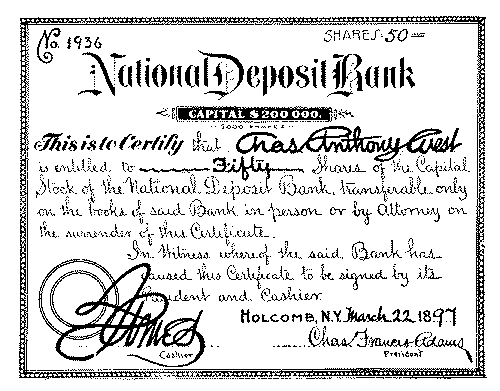 No. 1936
SHARES 50
National Deposit Bank
CAPITAL $200.000.
This is to Certify that Chas Anthony West
is entitled to Fifty Shares of the Capital
Stock of the National Deposit Bank, transferable only
on the books of said Bank in person or by Attorney on
the surrender of this Certificate.
In Witness where of the said Bank has
caused this Certificate to be signed by its
President and Cashier.
HOLCOMB, N.Y. March 22 1897
Chas Francis Adams
Cashier
President